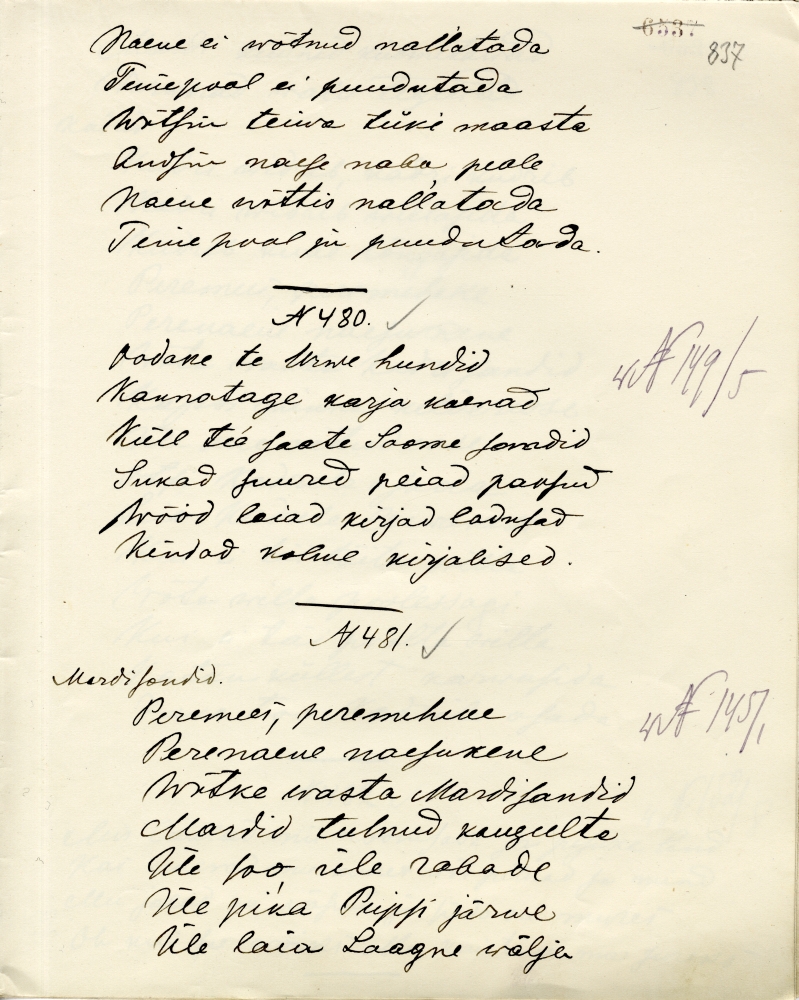 6537
837
Naene ei wõtnud nal'l'atada
Teine pool ei puudutada
Wõtsin teiwa tüki maasta
Andsin naese naba peale
Naene wõttis nal'l'atada
Teine pool ju puudutada.
N 480.
Oodake te Urwe hundid
Kannatage karja koerad
Küll teie saate Soome sandid
Sukad suured peiad paksud
Wööd laiad kirjad ladusad
Kindad kolme kirjalised.
N 149/5
N 481.
Mardisandid.
Peremees, peremehene
Perenaene naesukene
Wõtke wasta Mardisandid
Mardid tulnud kaugeelta
Üle soo üle rabade
Üle pika Peipsi järwe
Üle laia Laagne wälja
N 145/1